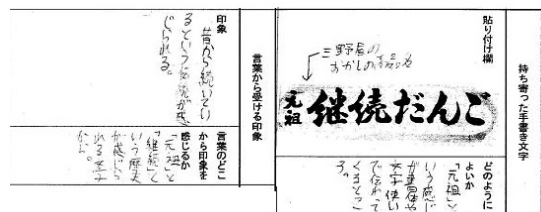 持ち寄った手書き文字
貼り付け欄
三野屋の
おかしの商品名
元祖
継続だんご
どのように
よいか
「元祖」と
いう感じ
が書体や
文字使い
で伝わって
くるところ
言葉から受ける印象
印象
昔から続いてい
るという感じが感
じられる。
言葉のどこ
から印象を
感じるか
「元祖」と
「継続」と
いう歴史
が感じら
れる文字
から。